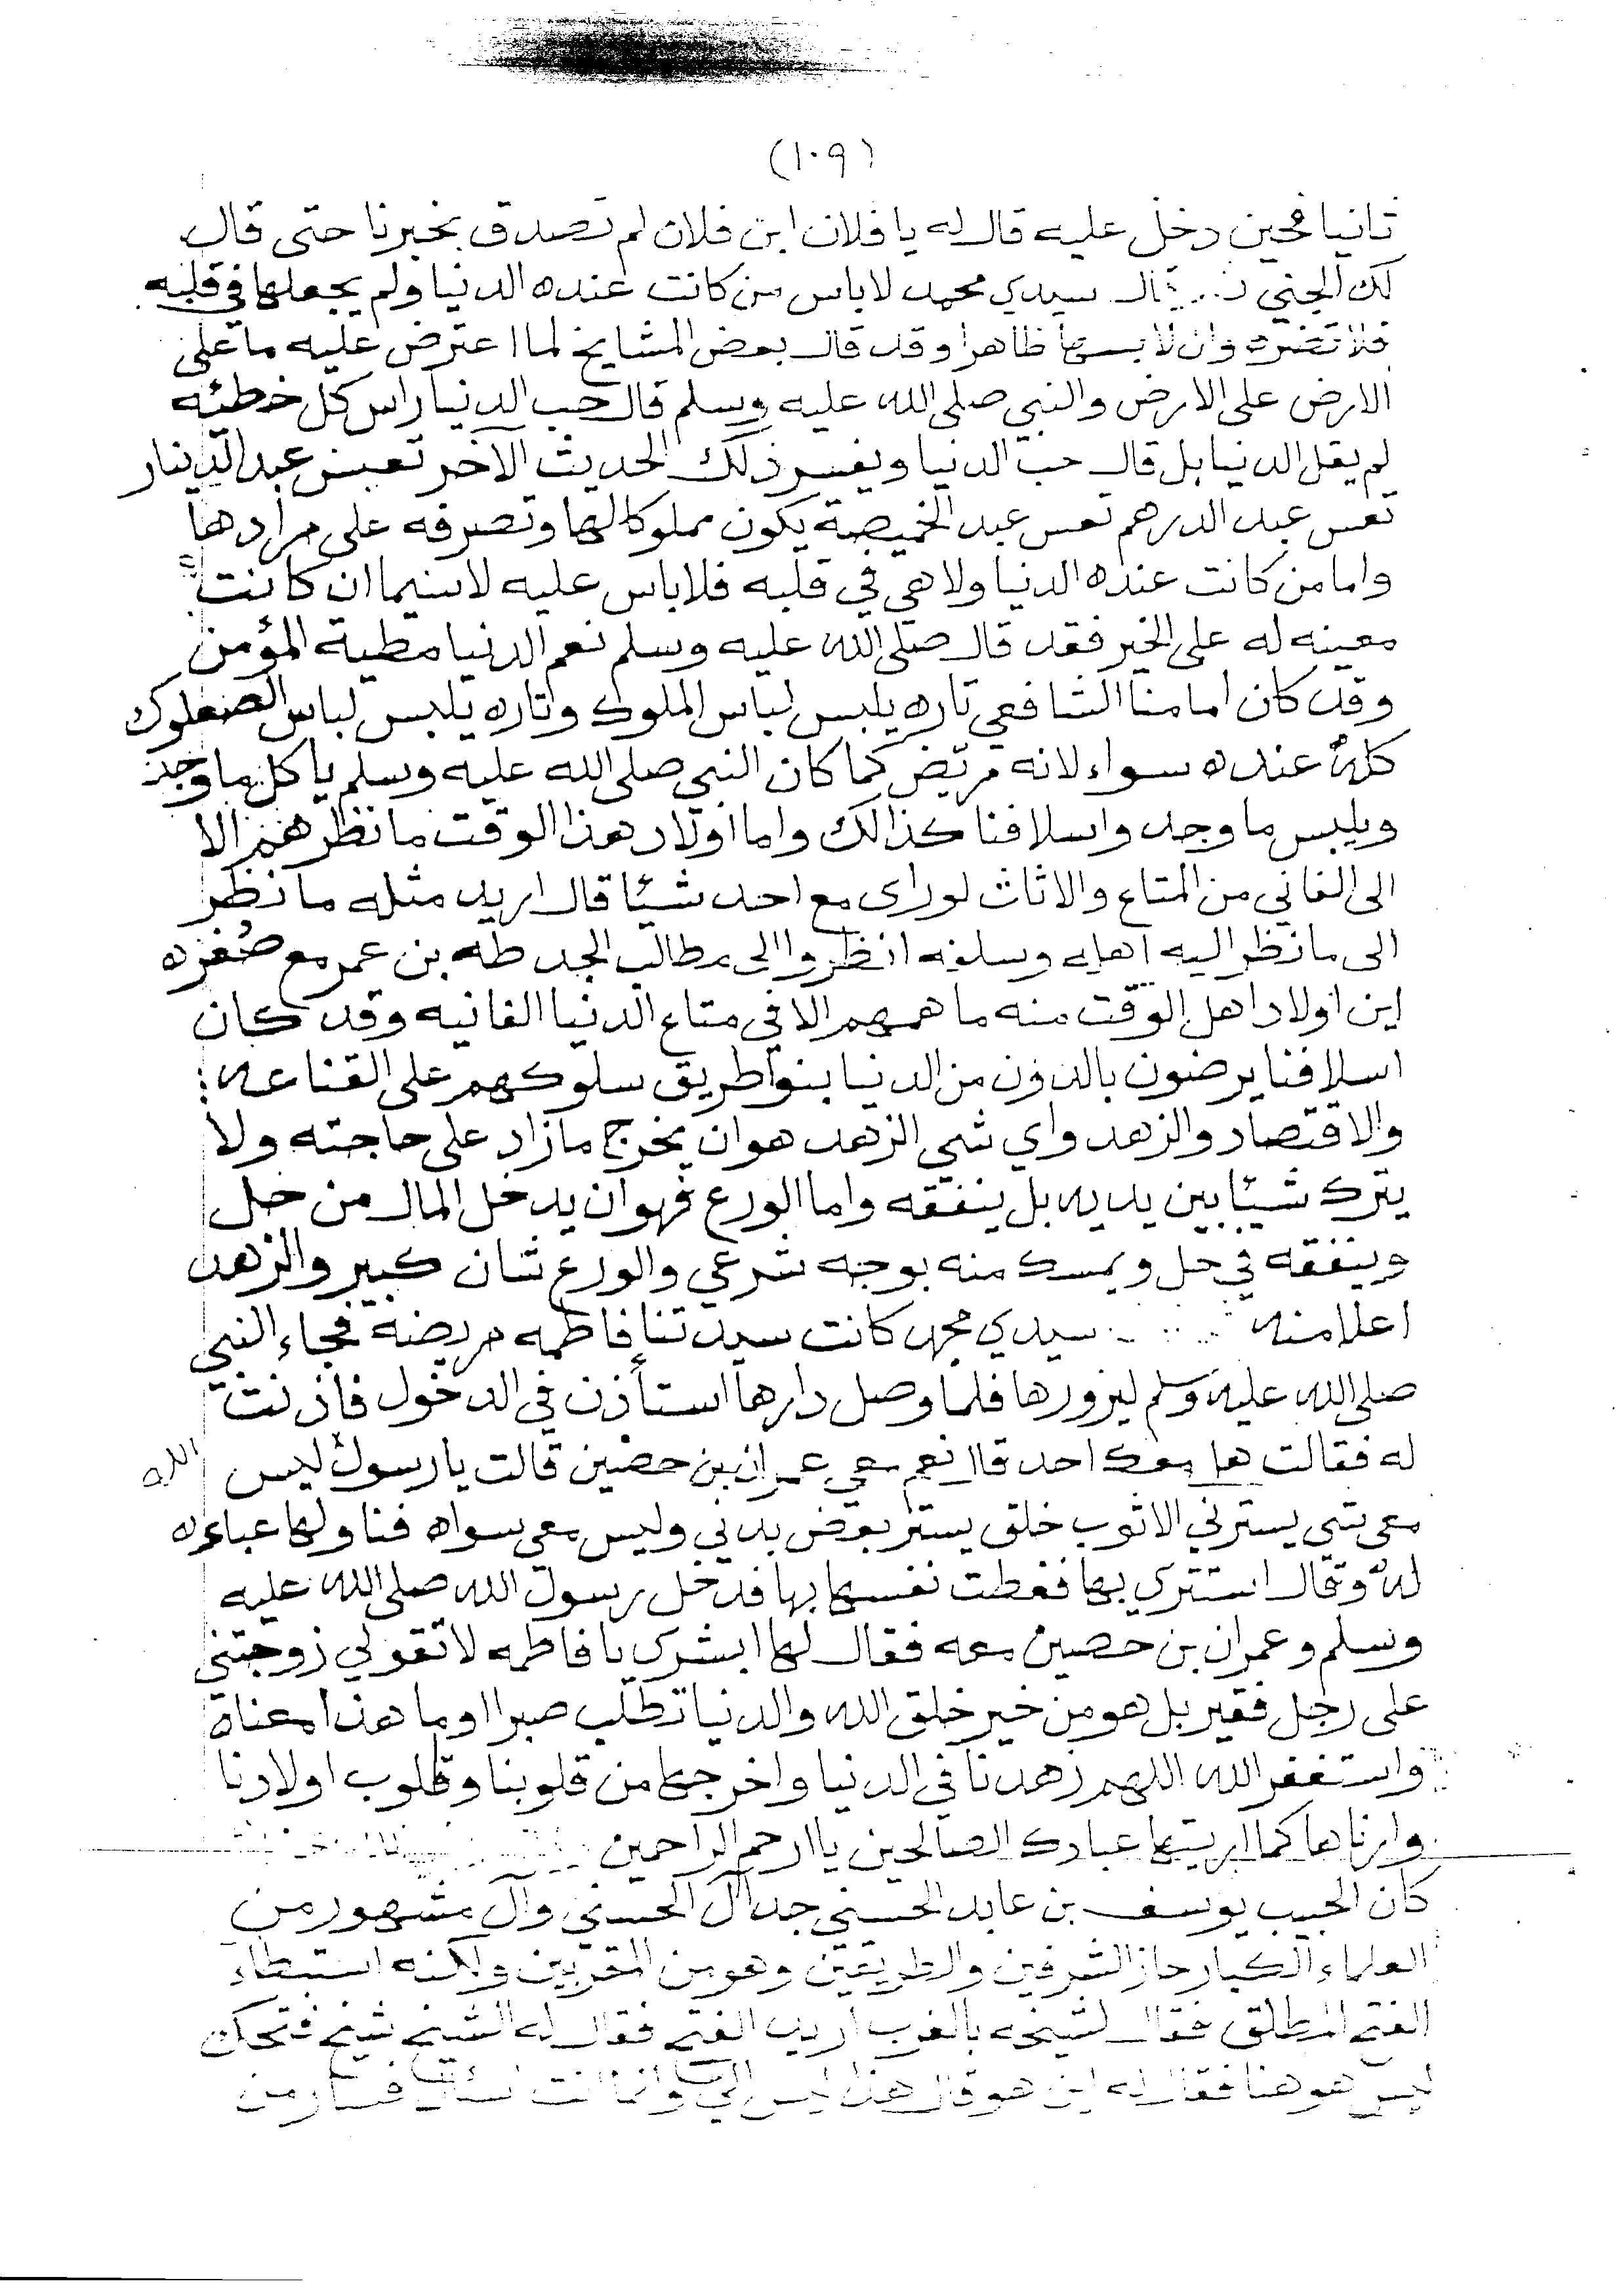 (١٠٩)
ثانيا فحين دخل عليه قال له يا فلان ابن فلان لم تصدق بخبرنا حتى قال
لك الجني قال سيدي محمد لاباس من كانت عنده الدنيا ولم يجعلها في قلبه
فلا تضره وان لابسها ظاهرا وقد قال بعض المشايخ لما اعترض عليه ما على
الارض على الارض والنبي صلى الله عليه وسلم قال حب الدنيا راس كل خطيئه
لم يقل الدنيا بل قال حب الدنيا ويفسر ذلك الحديث الآخر تعس عبد الدينار
تعس عبد الدرهم تعس عبد الخميصة يكون مملوكا لها وتصرفه على مرادها
واما من كانت عنده الدنيا ولا هي في قلبه فلاباس عليه لاسيما ان كانت
معينه له على الخير فقد قال صلى الله عليه وسلم نعم الدنيا مطية المؤمن
وقد كان امامنا الشافعي تاره يلبس لباس الملوك وتاره يلبس لباس الصعلوك
كله عنده سواء لانه مريّض كما كان النبي صلى الله عليه وسلم ياكل ما وجد
ويلبس ما وجد واسلافنا كذالك واما اولاد هذا الوقت ما نظرهم الا
الى الفاني من المتاع والاثاث لوراى مع احد شيئا قال اريد مثله ما نظر
الى ما نظر اليه اهله وسلفه انظروا الى مطالب الجد طه بن عمر مع صغره
اين اولاد اهل الوقت منه ما همهم الا في متاع الدنيا الفانيه وقد كان
اسلافنا يرضون بالدون من الدنيا بنوا طريق سلوكهم على القناعه
والاقتصاد والزهد واي شي الزهد هو ان يخرج مازاد على حاجته ولا
يترك شيئا بين يديه بل ينفقه واما الورع فهو ان يدخل المال من حل
وينفقه في حل ويمسك منه بوجه شرعي والورع شان كبير والزهد
اعلا منه سيدي محمد كانت سيدتنا فاطمه مريضة فجاء النبي
صلى الله عليه وسلم ليزورها فلما وصل دارها استأذن في الدخول فاذنت
له فقالت هل معك احد قال نعم معي عمران بن حصين قالت يا رسول الله ليس
معي شي يسترني الا ثوب خلق يستر بعض بدني وليس معي سواه فناولها عباءه
له وقال استتري بها فغطت نفسها بها فدخل رسول الله صلى الله عليه
وسلم وعمران بن حصين معه فقال لها ابشري يا فاطمه لا تقولي زوجتني
على رجل فقير بل هو من خير خلق الله والدنيا تطلب صبرا او ما هذا معناه
واستغفر الله اللهم زهدنا في الدنيا واخرجها من قلوبنا وقلوب اولادنا
وارناها كما اريتها عبادك الصالحين يا ارحم الراحمين
كان الحبيب يوسف بن عابد الحسني جد آل الحسني وآل مشهور من
العلماء الكبار حاز الشرفين والطريقين وهو من المقربين ولكنه استبطاء
الفتح المطلق فقال لشيخه بالغرب اريد الفتح فقال له الشيخ شيخ فتحك
ليس هو هنا فقال له اين هو قال هذا ليس الي وانما انت من